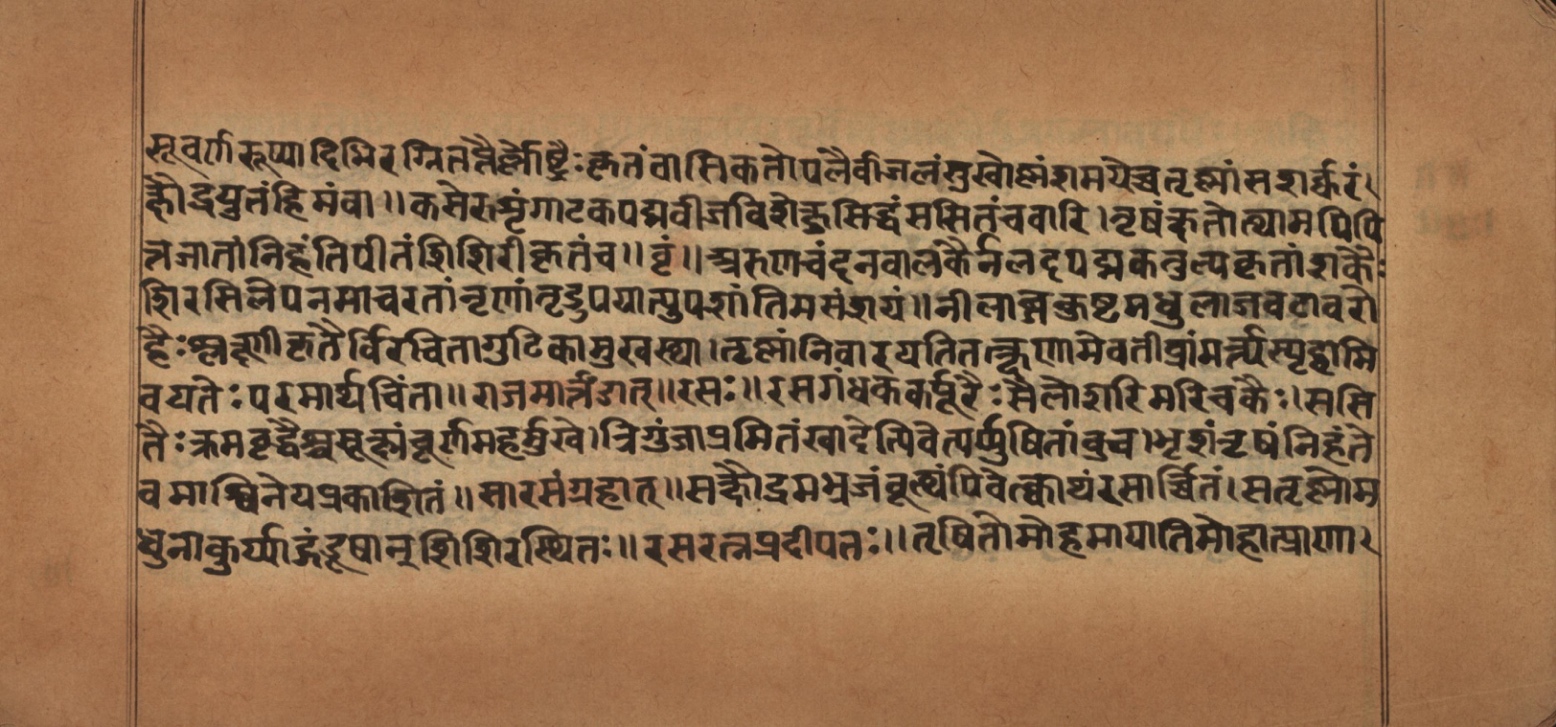 सूवर्णरूप्यादिभिरग्नितप्तैर्ल्लोष्ट्रैःकृतंवासिकतोपलैर्वाजलंसुखोष्णंशमयेच्चतृष्णांसशर्क्करं।
क्षौद्रयुतंहिमंवा॥कसेरुशृंगाटकपद्मवीजविशेक्षुसिद्धंससितंचवारि।तृषंक्षतोत्थामपिपि
त्तजातांनिहंतिपीतंशिशिरीकृतंच॥वृं॥अरुणचंदनवालकैर्नलदपद्मकतुल्यकृतांशकैः
शिरसिलेपनमाचरतांनृणांतृडुपयात्युपशांतिमसंशयं॥नीलाब्जकुष्टमधुलाजवटावरो
हैःश्लक्ष्णीकृतैर्विरचितागुटिकामुखस्था।तृष्णांनिवारयतितत्क्षणमेवतीव्रांमर्त्यस्पृहामि
वयतेःपरमार्थचिंता॥राजमार्त्तंडात्॥रसः॥रसगंधककर्पूरैःसैलोशरिमरिचकैः।ससि
तैःक्रमवृद्धैश्चसूक्ष्मंचूर्णमहर्मुखे।त्रिगुंजाप्रमितंखादेत्पिवेत्पर्युषितांवुच।भृशंतृषंनिहंते
वमाश्विनेयप्रकाशितं॥सारसंग्रहात्॥सक्षौद्रमम्रजंवूत्थंपिवेत्क्वाथंरसार्च्चितं।सतृष्णोम
धुनाकुर्य्याद्गंडूषान्शिशिरस्थितः॥रसरत्नप्रदीपतः॥तृषितोमोहमायातिमोहात्प्राणा